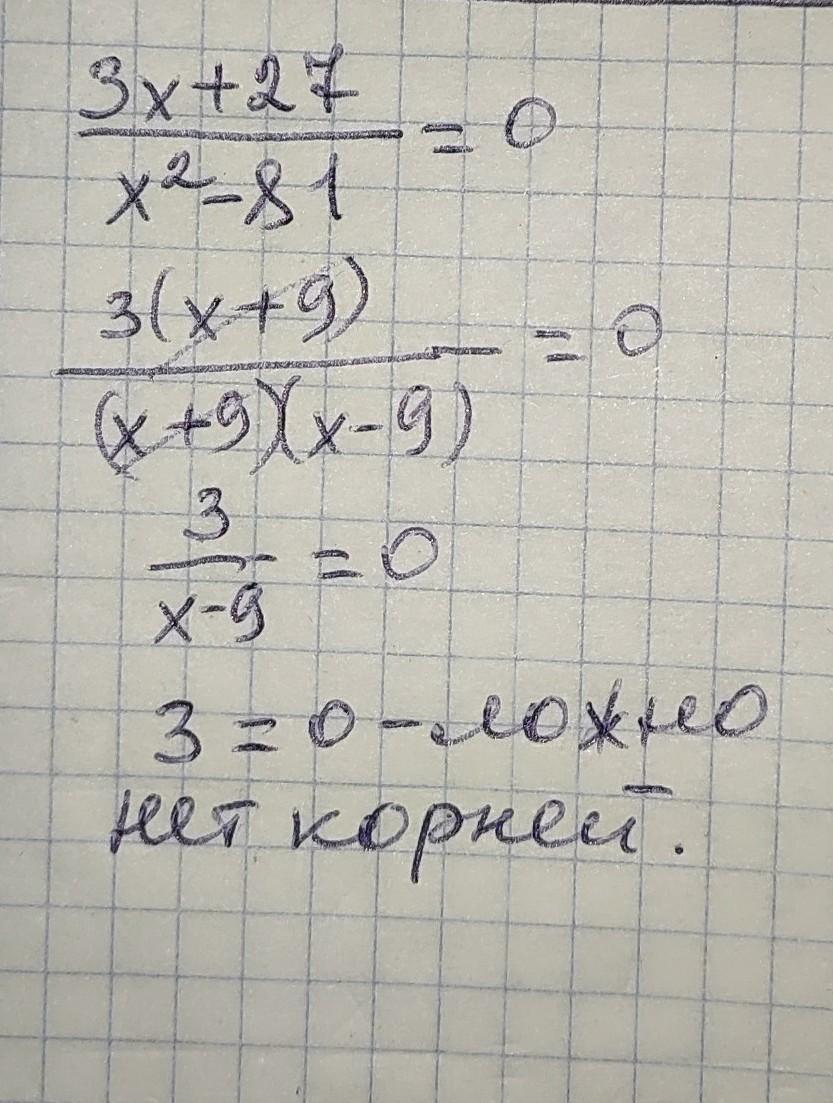 3x+27
x²-81 = 0
3(x+9)
(x+9)(x-9) = 0
3
x-9 = 0
3 = 0 - ложно
нет корней.